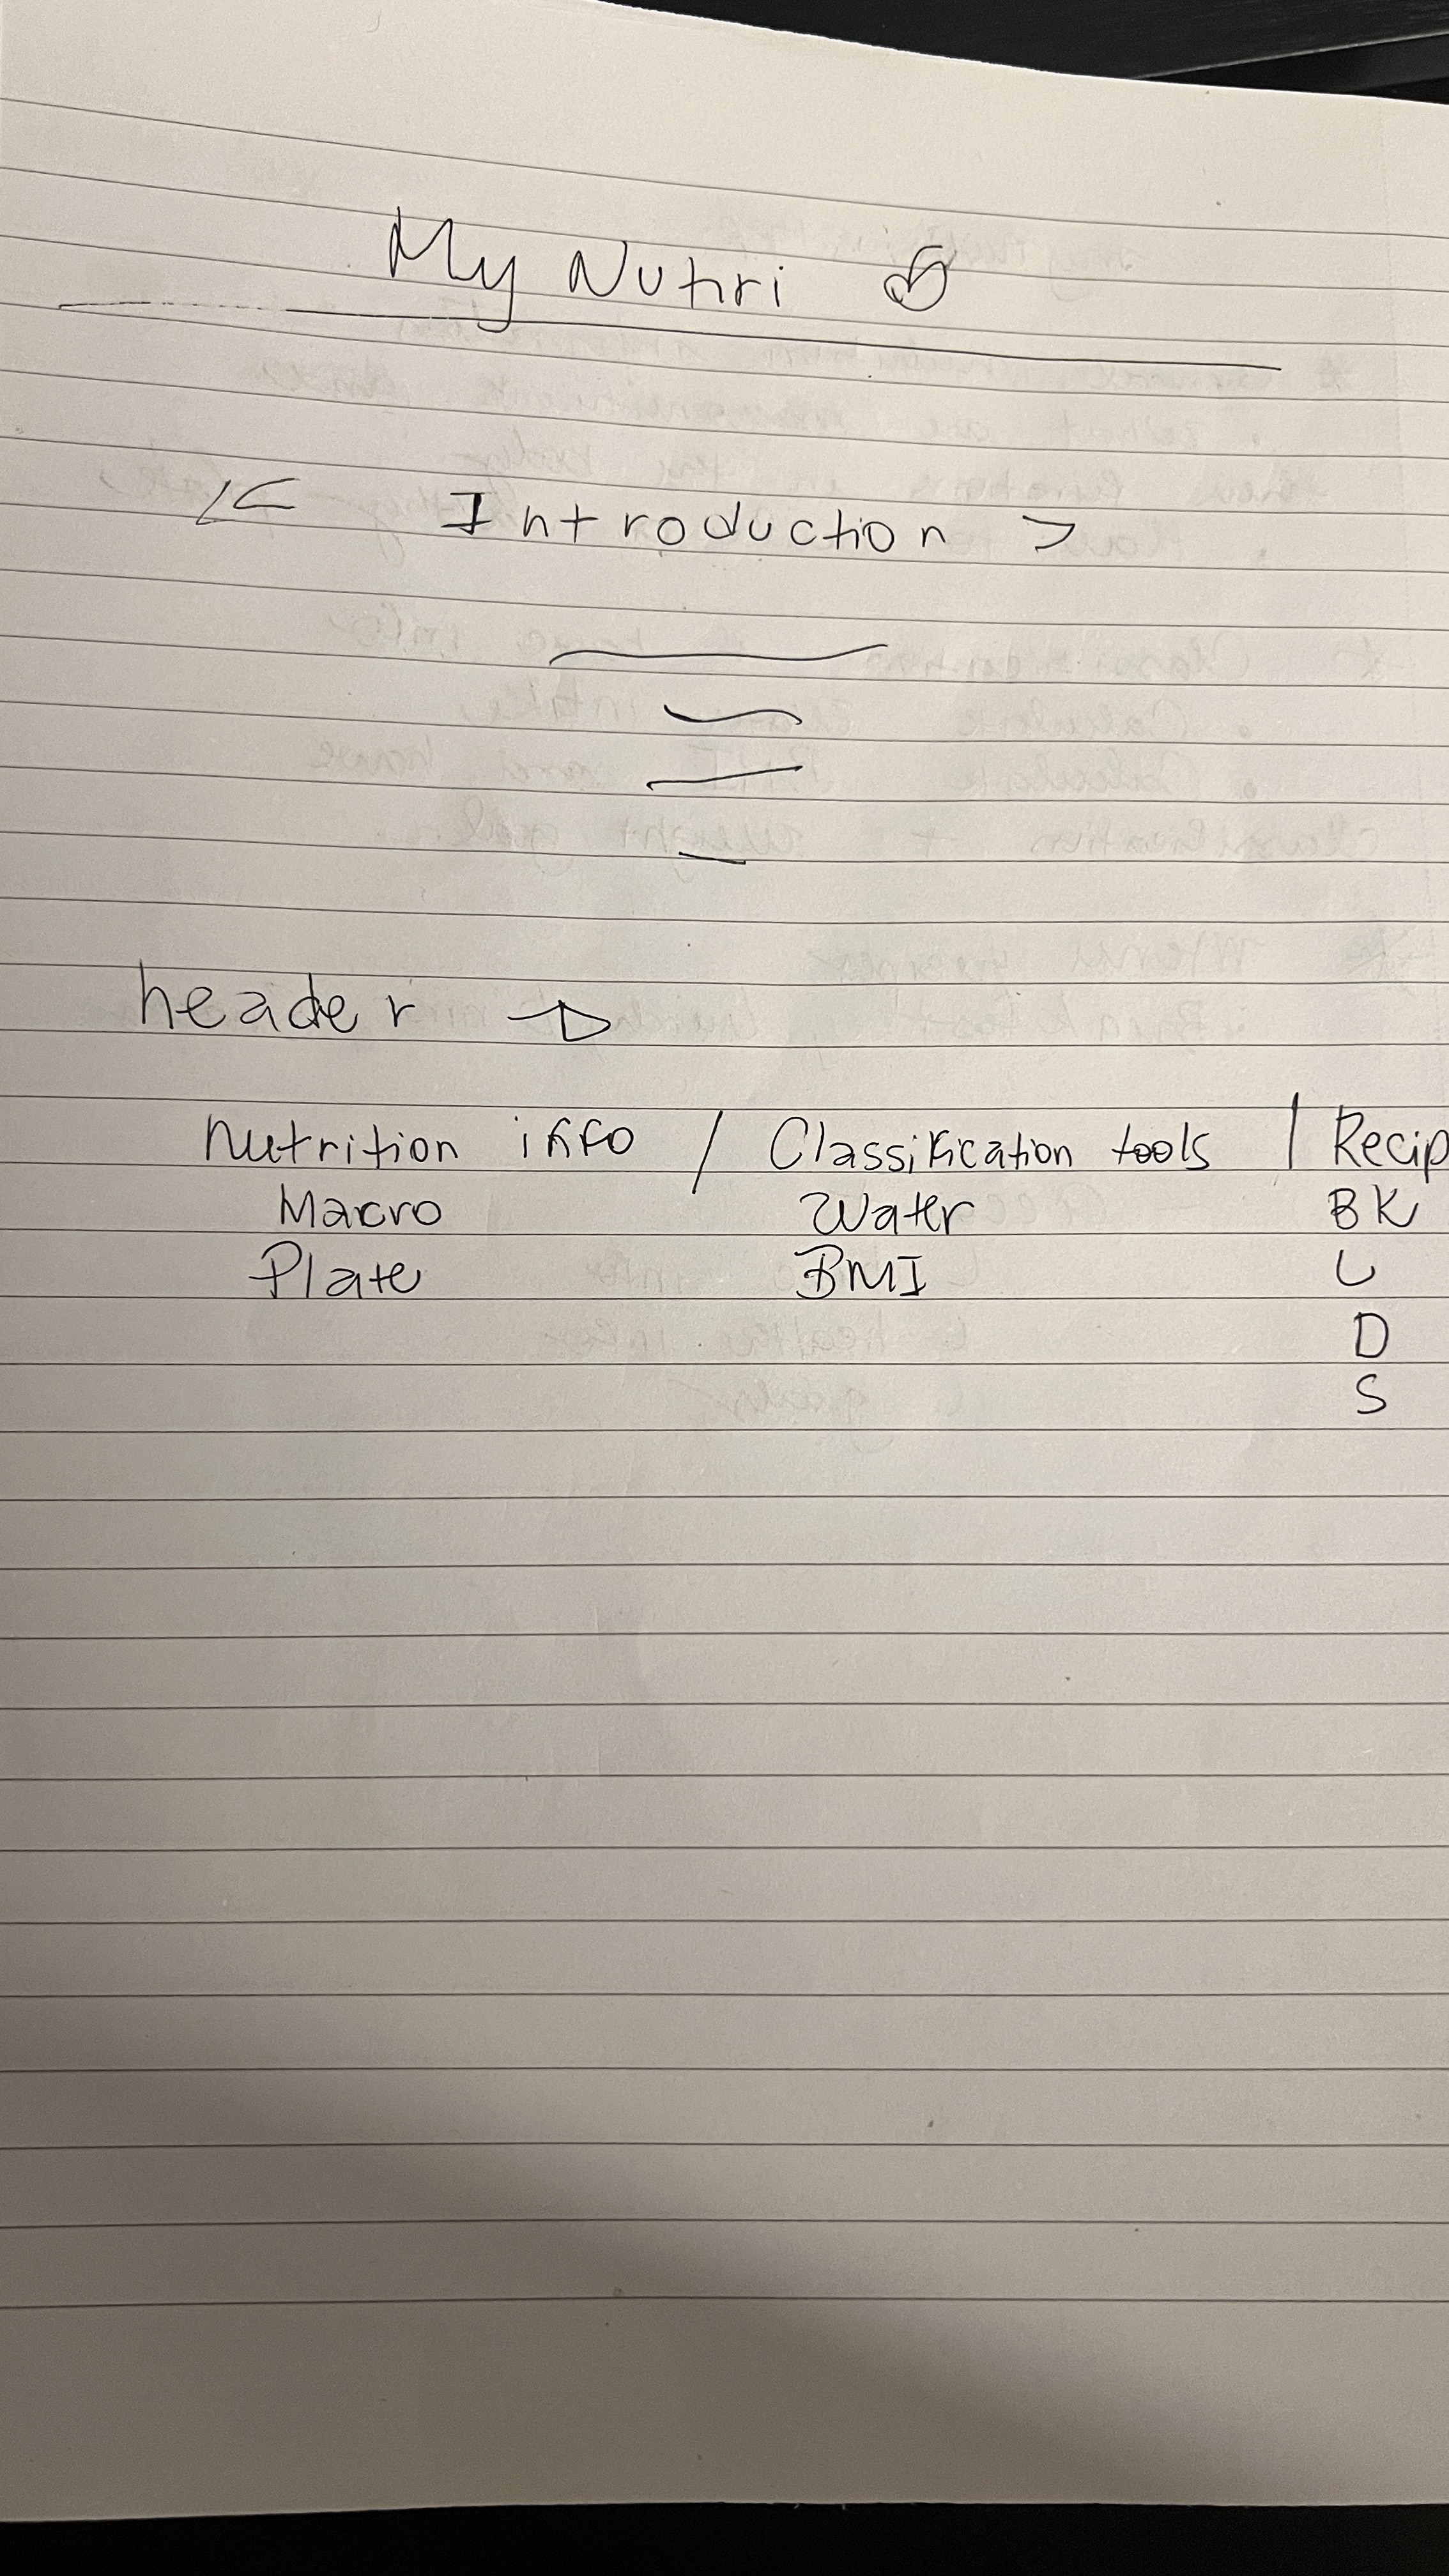 My Nutiri
< Introduction >
header →
Nutrition info / Classification tools | Recip
Macro Water BK
Plate BMI L
D
S